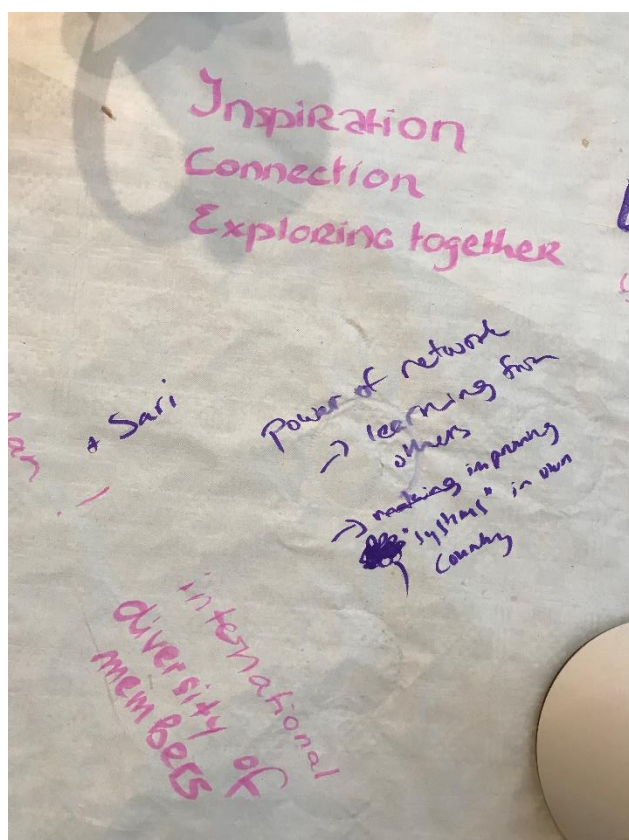 Inspiration
Connection
Exploring together
+ Sari
Power of network
→ learning from
others
→ making improving
"systems" in own
country
international
diversity of
members